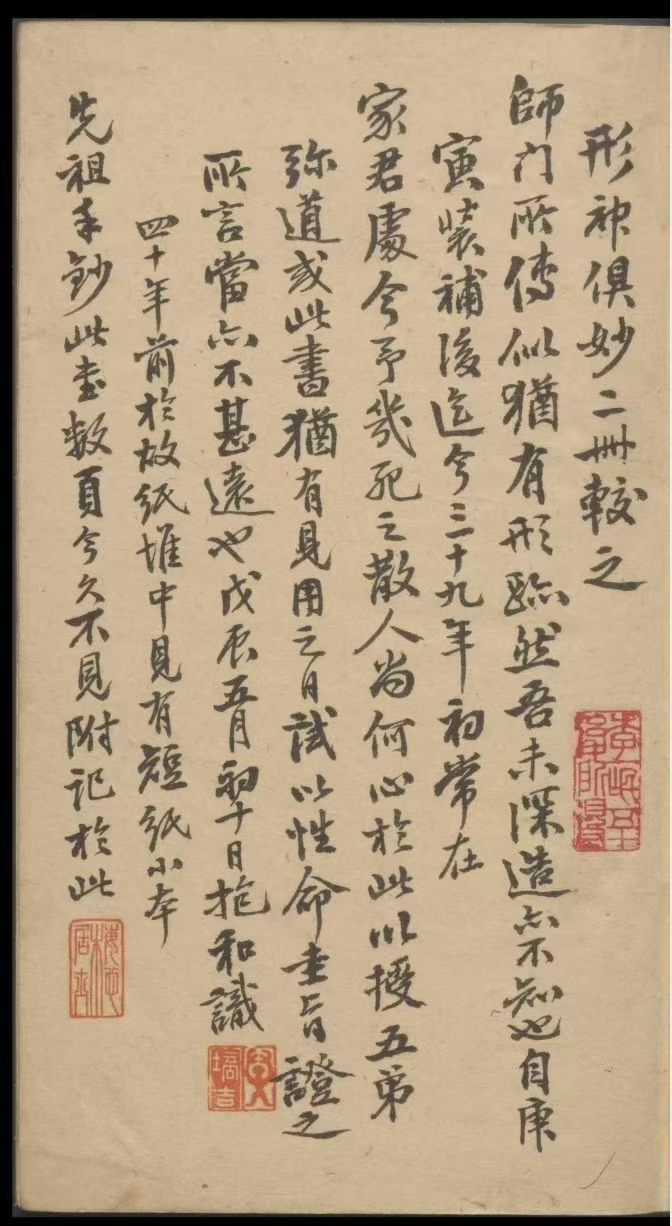 形神俱妙二冊較之
師门所傳似猶有形跡然吾未深造亦不知也自庚
寅裝補後迄今三十九年初常在
家君處今予幾死之散人尚何心於此以授五弟
弥道或此書猶有見用之日試以性命圭旨證之
所言當亦不甚遠也戊辰五月初十日抱和識
四十年前於故紙堆中見有短紙小本
先祖手鈔此書數頁今久不見附記於此